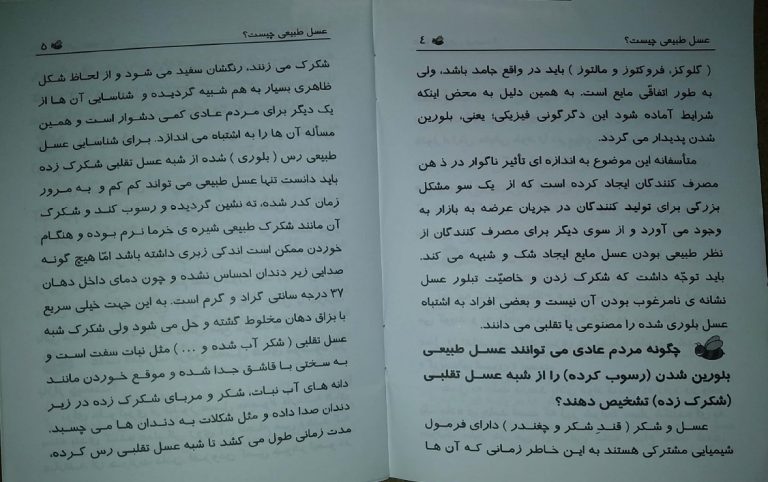 عسل طبیعی چیست؟ ٤
( گلوکز، فروکتوز و مالتوز ) باید در واقع جامد باشد، ولی
به طور اتفاقی مایع است. به همین دلیل به محض اینکه
شرایط آماده شود این دگرگونی فیزیکی؛ یعنی، بلورین
شدن پدیدار می گردد.
متأسفانه این موضوع به اندازه ای تأثیر ناگوار در ذهن
مصرف کنندگان ایجاد کرده است که از یک سو مشکل
بزرگی برای تولید کنندگان در جریان عرضه به بازار به
وجود می آورد و از سوی دیگر برای مصرف کنندگان از
نظر طبیعی بودن عسل مایع ایجاد شک و شبهه می کند.
باید توجّه داشت که شکرک زدن و خاصیّت تبلور عسل
نشانه ی نامرغوب بودن آن نیست و بعضی افراد به اشتباه
عسل بلوری شده را مصنوعی یا تقلبی می دانند.
چگونه مردم عادی می توانند عسل طبیعی
بلورین شدن (رسوب کرده) را از شبه عسل تقلبی
(شکرک زده) تشخیص دهند؟
عسل و شکر ( قندِ شکر و چغندر ) دارای فرمول
شیمیایی مشترکی هستند به این خاطر زمانی که آن ها
عسل طبیعی چیست؟ ٥
شکرک می زنند، رنگشان سفید می شود و از لحاظ شکل
ظاهری بسیار به هم شبیه گردیده و شناسایی آن ها از
یک دیگر برای مردم عادی کمی دشوار است و همین
مسأله آن ها را به اشتباه می اندازد. برای شناسایی عسل
طبیعی رس ( بلوری ) شده از شبه عسل تقلبی شکرک زده
باید دانست تنها عسل طبیعی می تواند کم کم و به مرور
زمان کدر شده، ته نشین گردیده و رسوب کند و شکرک
آن مانند شکرک طبیعی شیره ی خرما نرم بوده و هنگام
خوردن ممکن است اندکی زبری داشته باشد امّا هیچ گونه
صدایی زیر دندان احساس نشده و چون دمای داخل دهان
۳۷ درجه سانتی گراد و گرم است. به این جهت خیلی سریع
با بزاق دهان مخلوط گشته و حل می شود ولی شکرک شبه
عسل تقلبی ( شکر آب شده و ... ) مثل نبات سفت است و
به سختی با قاشق جدا شده و موقع خوردن مانند
دانه های آب نبات، شکر و مربای شکرک زده در زیر
دندان صدا داده و مثل شکلات به دندان ها می چسبد.
مدت زمانی طول می کشد تا شبه عسل تقلبی رس کرده،